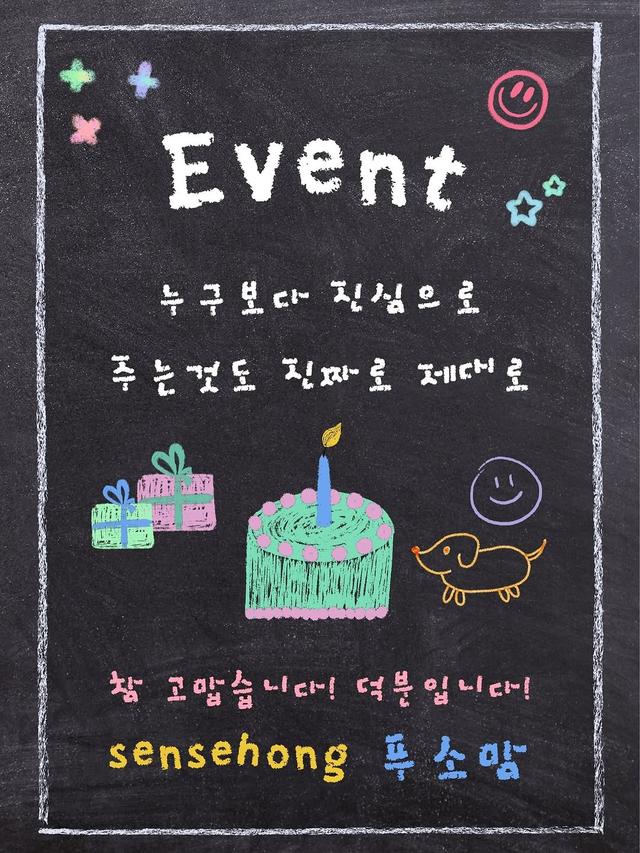 Event
누구보다 진심으로
주는것도 진짜로 제대로
참 고맙습니다! 덕분입니다!
sensehong 푸소맘